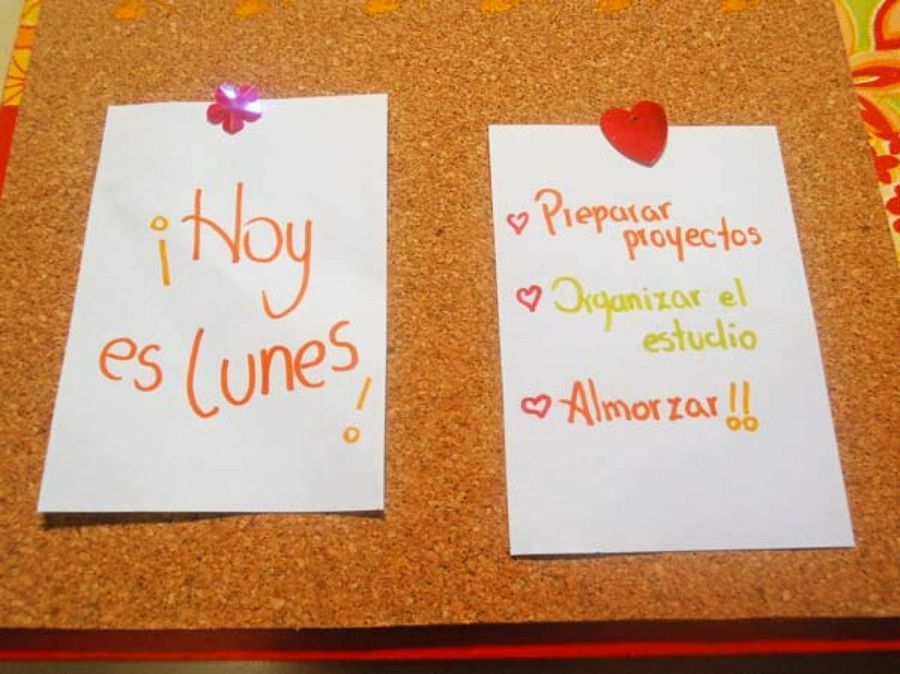 ¡Hoy
es lunes!
Preparar
proyectos
Organizar el
estudio
Almorzar!!